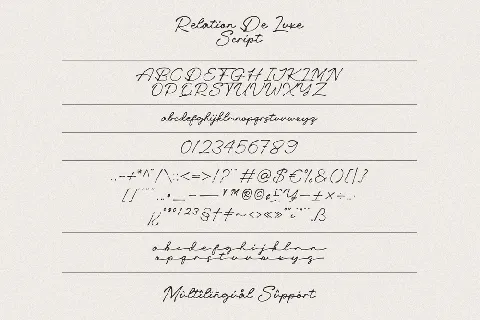 Relation De Luxe
Script
ABCDEFGHIJKLMN
OPQRSTUVWXYZ
abcdefghijklmnopqrstuvwxyz
0123456789
#@$€%&()[]?
abcdefghijklmn
opqrstuvwxyz
Multilingual Support